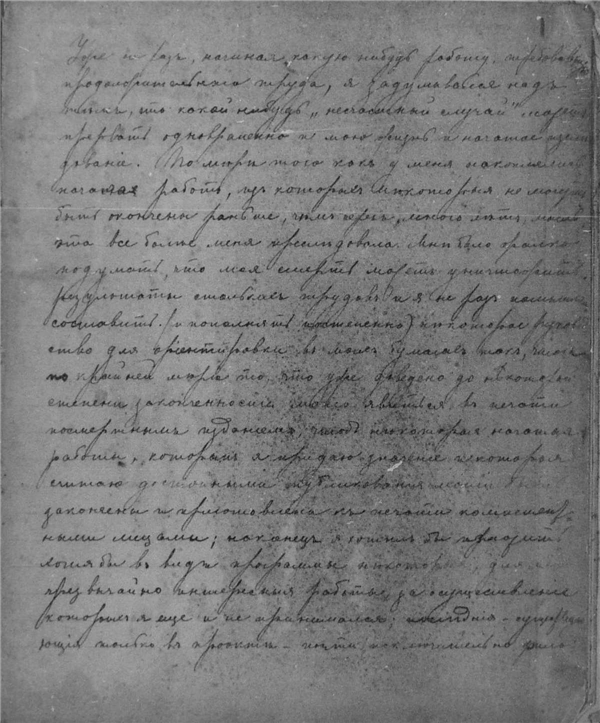 Уже не раз, начиная какую нибудь работу, требовавшую
продолжительнаго труда, я задумывался надъ
тѣмъ, что какой нибудь „несчастный случай" можетъ
прервать одновременно и мою жизнь и начатое изслѣ-
дованіе. По мѣрѣ того какъ у меня накоплялись
начатыя работы, изъ которыхъ нѣкоторыя не могутъ
быть окончены раньше, чѣмъ черезъ много лѣтъ, мысль
эта все болѣе меня преслѣдовала. Мнѣ было жалко
подумать, что моя смерть можетъ уничтожить
результаты столькихъ трудовъ и я не разъ
составить (и пополнять постепенно) нѣкоторое руковод-
ство для оріентировки въ моихъ бумагахъ такъ, чтобы
по крайней мѣрѣ то, что уже доведено до нѣкоторой
степени законченности могло явиться въ печати
посмертнымъ изданіемъ, чтобы нѣкоторыя начатыя
работы, которымъ я придаю значеніе и которыя
считаю достойными опубликованія могли быть
закончены и приготовлены къ печати компетент-
ными лицами; наконецъ я хотѣлъ бы
хотя бы въ видѣ программы нѣкоторыя, для
чрезвычайно интересныя работы, за осуществленіе
которыхъ я еще и не принимался; послѣднія - существу-
ющія только въ проектѣ - почти исключительно